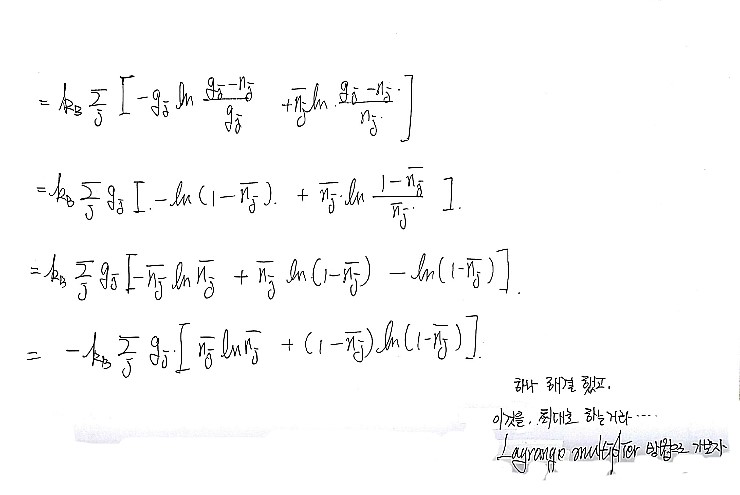 = k_B Σ_j [ -g_j ln (g_j - n_j)/g_j + n̄_j ln (g_j - n_j)/n_j ]
= k_B Σ_j g_j [ -ln(1 - n̄_j) + n̄_j ln (1 - n̄_j)/n̄_j ].
= k_B Σ_j g_j [ -n̄_j ln n̄_j + n̄_j ln(1 - n̄_j) - ln(1 - n̄_j) ].
= -k_B Σ_j g_j [ n̄_j ln n̄_j + (1 - n̄_j) ln(1 - n̄_j) ].
하나 해결 했고.
이것을, 최대로 하는거라 ·····
Lagrange multiplier 방법으로 가보자